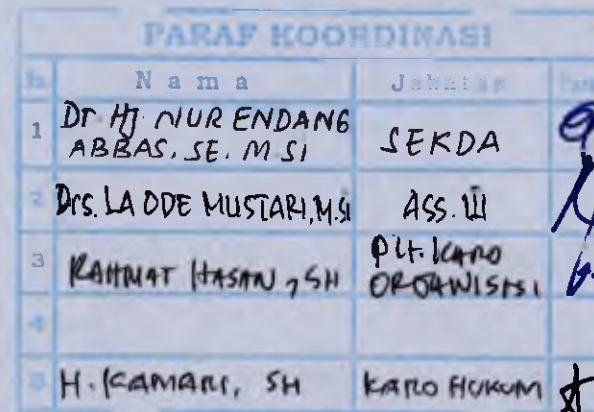 PARAF KOORDINASI
No Nama Jabatan Paraf
1 Dr. Hj. NUR ENDANG
ABBAS, SE. M SI SEKDA
2 Drs. LA ODE MUSTARI, M.SI ASS. III
3 RAHMAT HASAN, SH Plt. KARO
ORGANISASI
4
5 H. KAMARI, SH KARO HUKUM